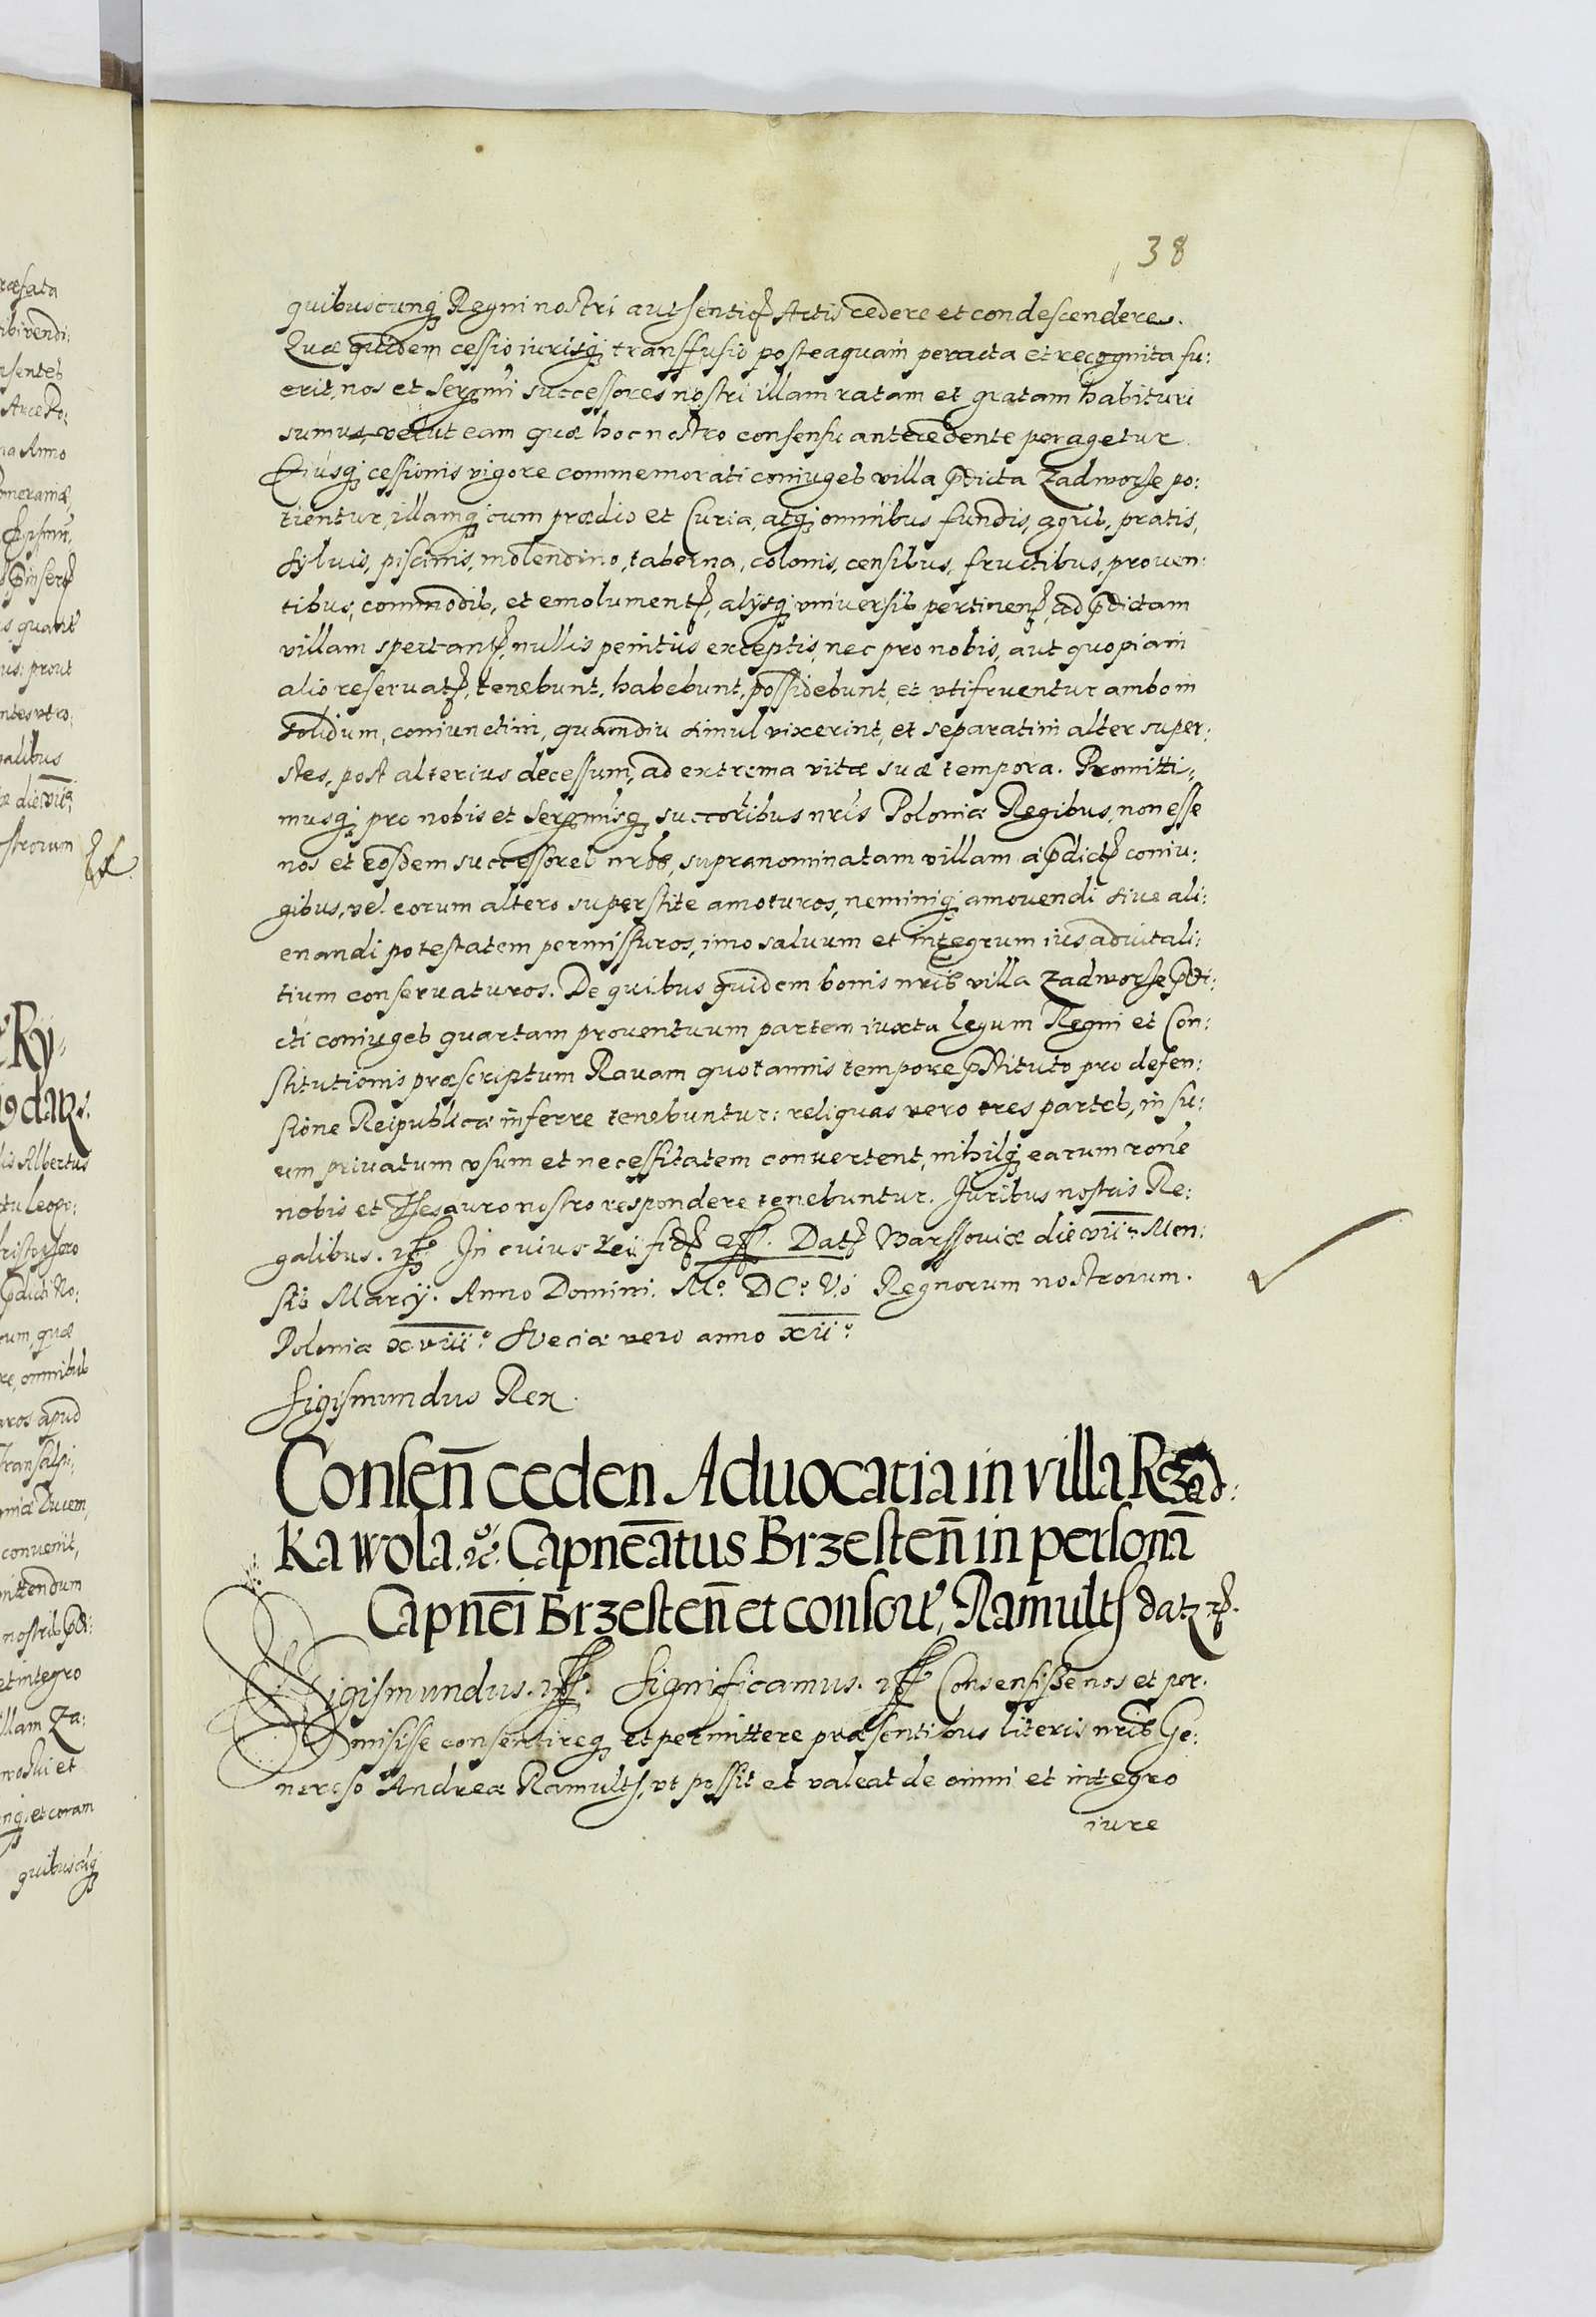 38
quibuscunq; Regni nostri authentic Actis cedere et condescendere.
Quæ quidem cessio iurisq; transffusio posteaquam peracta et recognita fu:
erit, nos et Sergmi successores nostri illam ratam et gratam habituri
sumus, velut eam quæ hoc nostro consensu antecedente peragetur.
Eiusq; cessionis vigore commemorati coniuges villa pdicta Zadworze po:
tientur, illamq; cum prædio et Curia, atq; omnibus fundis, agris, pratis,
syluis, piscinis, molendino, taberna, colonis, censibus, fructibus, prouen:
tibus, commodis, et emolument, alijsq; vniuersis pertinen, ad pdictam
villam spectan, nullis penitus exceptis, nec pro nobis, aut quopiam
alio reseruat, tenebunt, habebunt, possidebunt, et vtifruentur ambo in
solidum, coniunctim, quamdiu simul vixerint, et separatim alter super:
stes, post alterius decessum, ad extrema vitæ suæ tempora. Promitti:
musq; pro nobis et Sergmisq; succoribus nris Poloniæ Regibus, non esse
nos et eosdem successores nros, supranominatam villam a pdict coniu:
gibus, vel eorum altero superstite amoturos, neminiq; amouendi siue ali:
enandi potestatem permissuros, imo saluum et integrum ius aduitali:
tium conseruaturos. De quibus quidem bonis nris villa Zadworze pdi:
cti coniuges quartam prouentuum partem iuxta legum Regni et Con:
stitutionis præscriptum Rauam quotannis tempore pstituto pro defen:
sione Reipublicæ inferre tenebuntur: reliquas vero tres partes, in su:
um priuatum vsum et necessitatem conuertent, nihilq; earum rone
nobis et Thesauro nostro respondere tenebuntur. Juribus nostris Re:
galibus. In cuius rei fid Dat Warssouiæ die vii Men:
sis Marcij. Anno Domini. Mo. DCo. Vo Regnorum nostrorum.
Poloniæ xviii.o Sveciæ vero anno xii.o
Sigismundus Rex.
Consen̄ ceden Aduocatia in villa Rzad:
Ka wola. Capnēatus Brzesten̄ in person̄
Capnēi Brzesten̄ et consor, Ramults datz
Sigismundus. Significamus. Consensisse nos et per.
misisse consentireq; et permittere præsentibus literis nris Ge:
neroso Andreæ Ramults, vt possit et valeat de omni et integro
iure